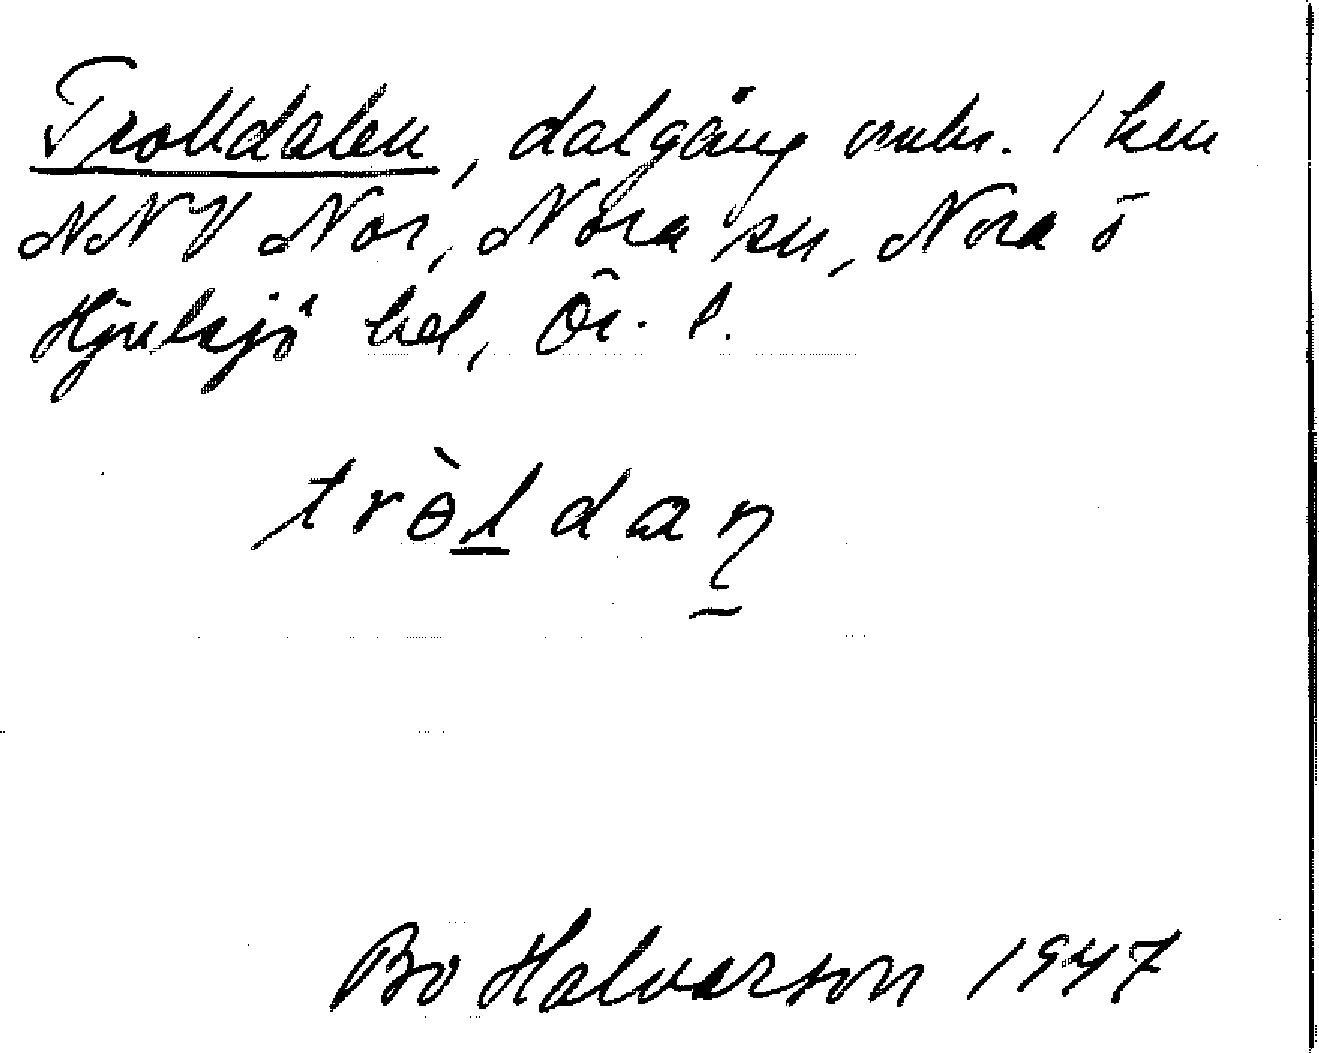 Trolldalen, dalgång omkr. 1 km
NNV Nor, Nora sn, Nora o
Hjulsjö bel, Ör. l.
tròldaɳ
Bo Halvarson 1947